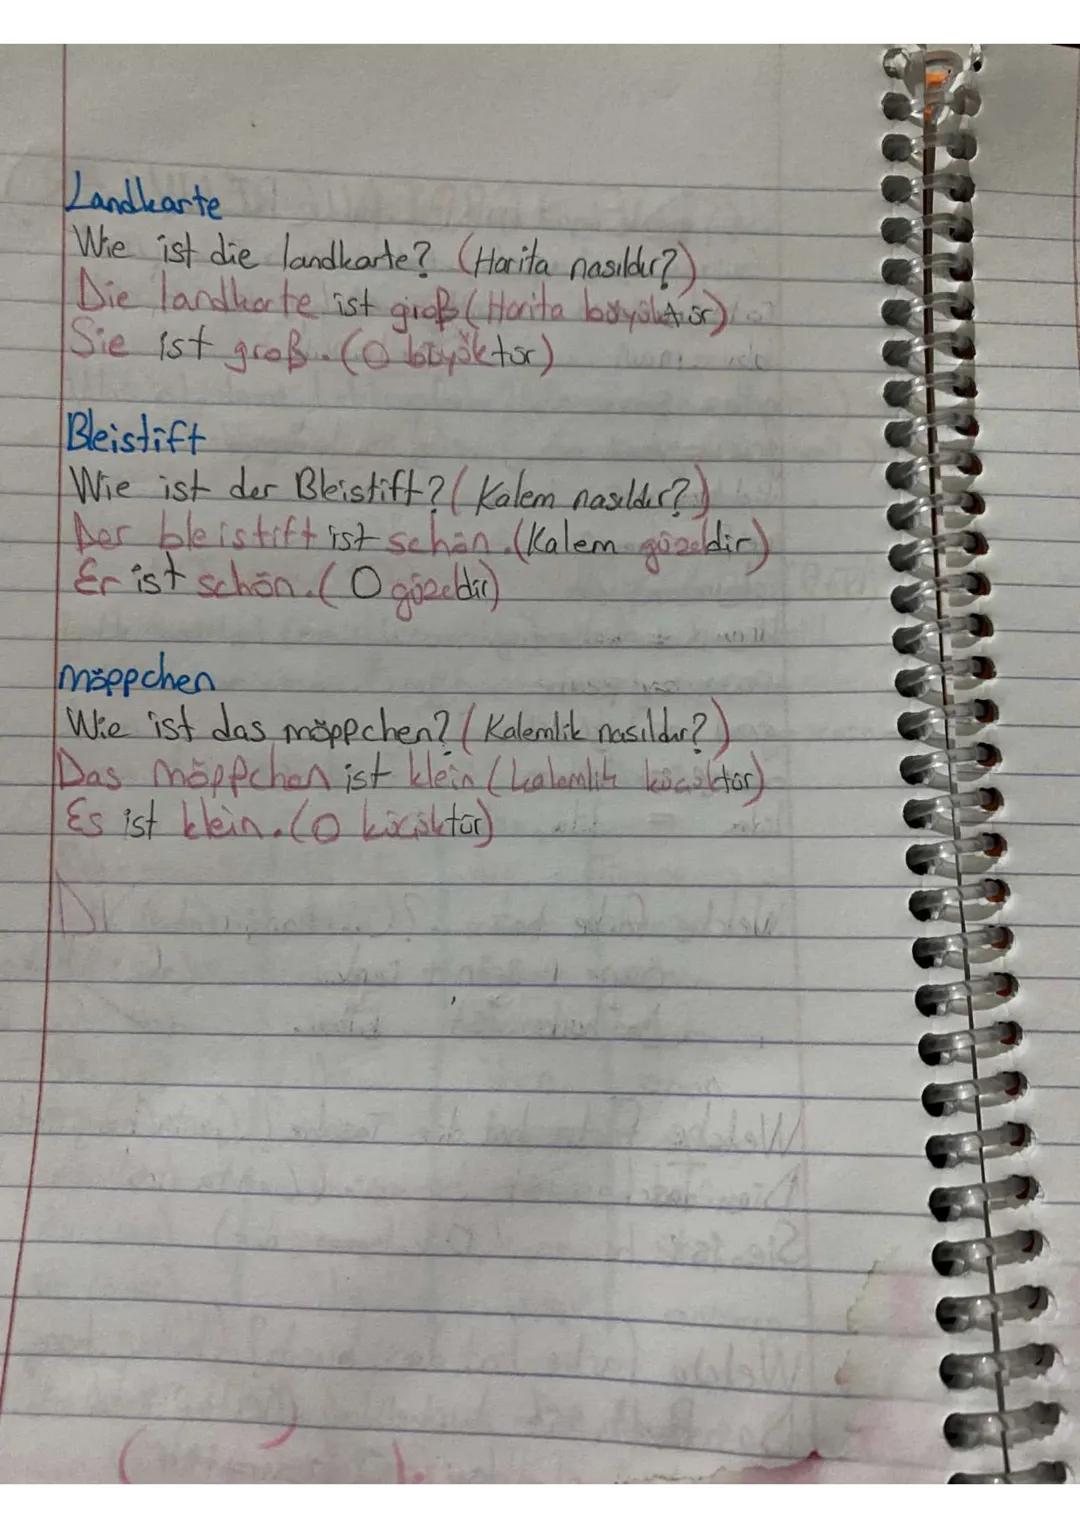 Landkarte
Wie ist die landkarte? (Harita nasıldır?)
Die landkarte ist groß (Harita büyüktür)
Sie ist groß. (O büyüktür)
Bleistift
Wie ist der Bleistift? (Kalem nasıldır?)
Der bleistift ist schön. (Kalem güzeldir)
Er ist schön. (O güzeldir)
Mäppchen
Wie ist das mäppchen? (Kalemlik nasıldır?)
Das Mäppchen ist klein (kalemlik küçüktür)
Es ist klein. (O küçüktür)